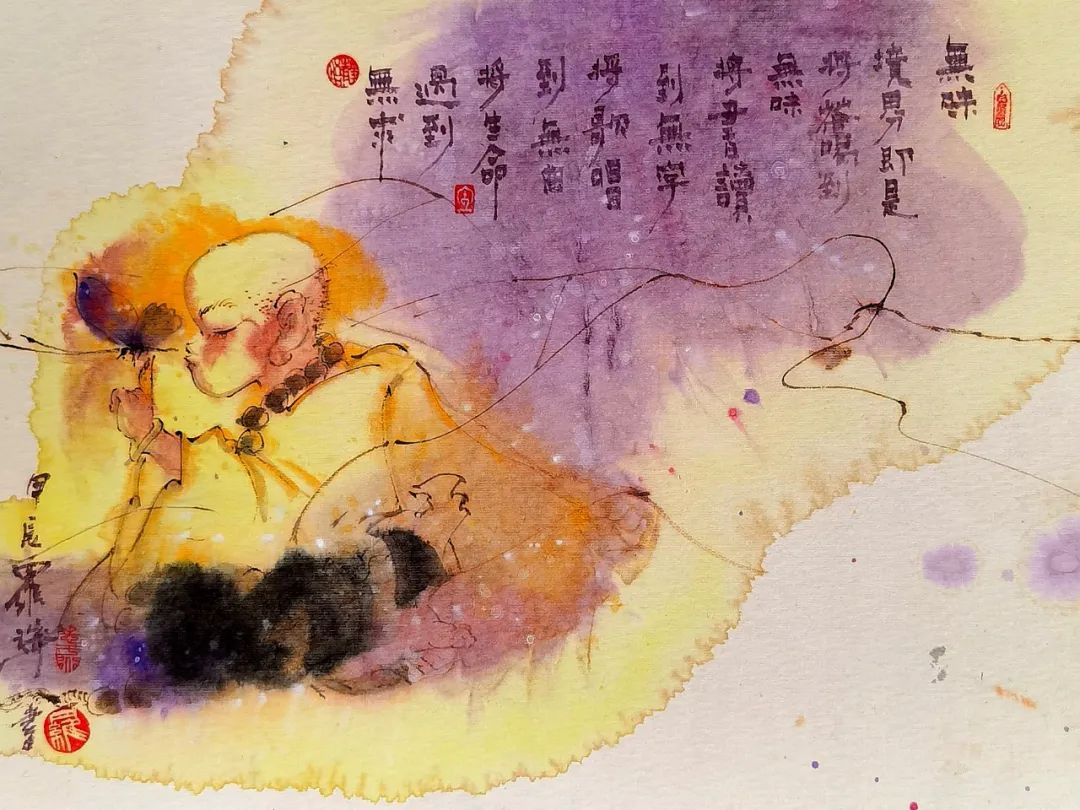 無味
境界即是
將茶喝到
無味
將書讀
到無字
將歌唱
到無
將生命
過到
無求
甲辰羅
書